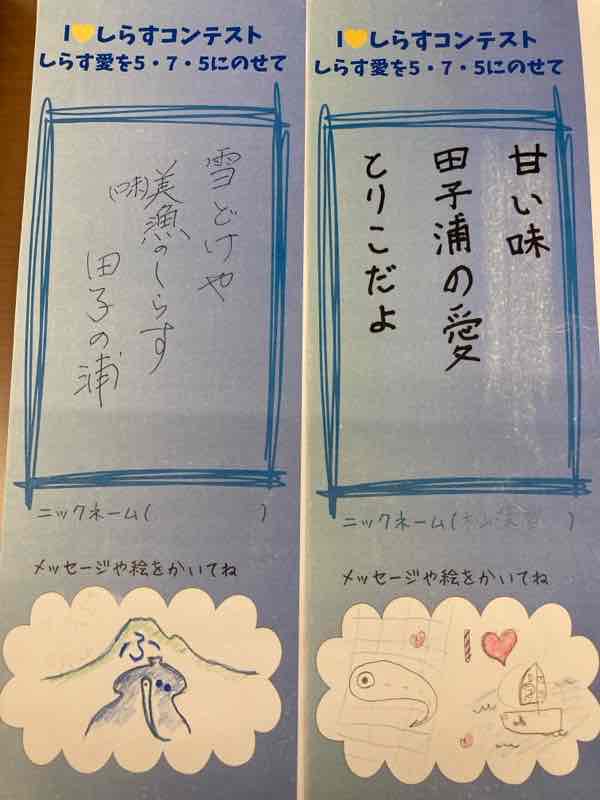 I💛しらすコンテスト
しらす愛を5・7・5にのせて
雪どけや
(味)美漁のしらす
田子の浦
ニックネーム( )
メッセージや絵をかいてね
ふ
I💛しらすコンテスト
しらす愛を5・7・5にのせて
甘い味
田子浦の愛
とりこだよ
ニックネーム( )
メッセージや絵をかいてね
I ♥